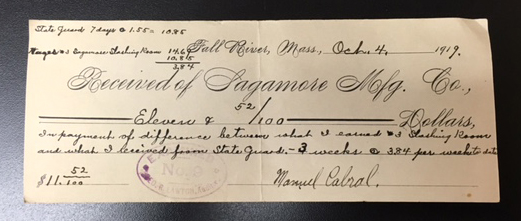 State Guard 7 days @ 1.55 = 10.85
Wages #3 Sagamore Slashing Room 14.69
10.85
3.84
Fall River, Mass., Oct. 4, 1919.
Received of Sagamore Mfg. Co.,
Eleven & 52/100 Dollars,
In payment of difference between what I earned #3 Slashing Room
and what I received from State Guard - 3 weeks @ 3.84 per week to date
$11. 52/100
No. 3
Manuel Cabral.